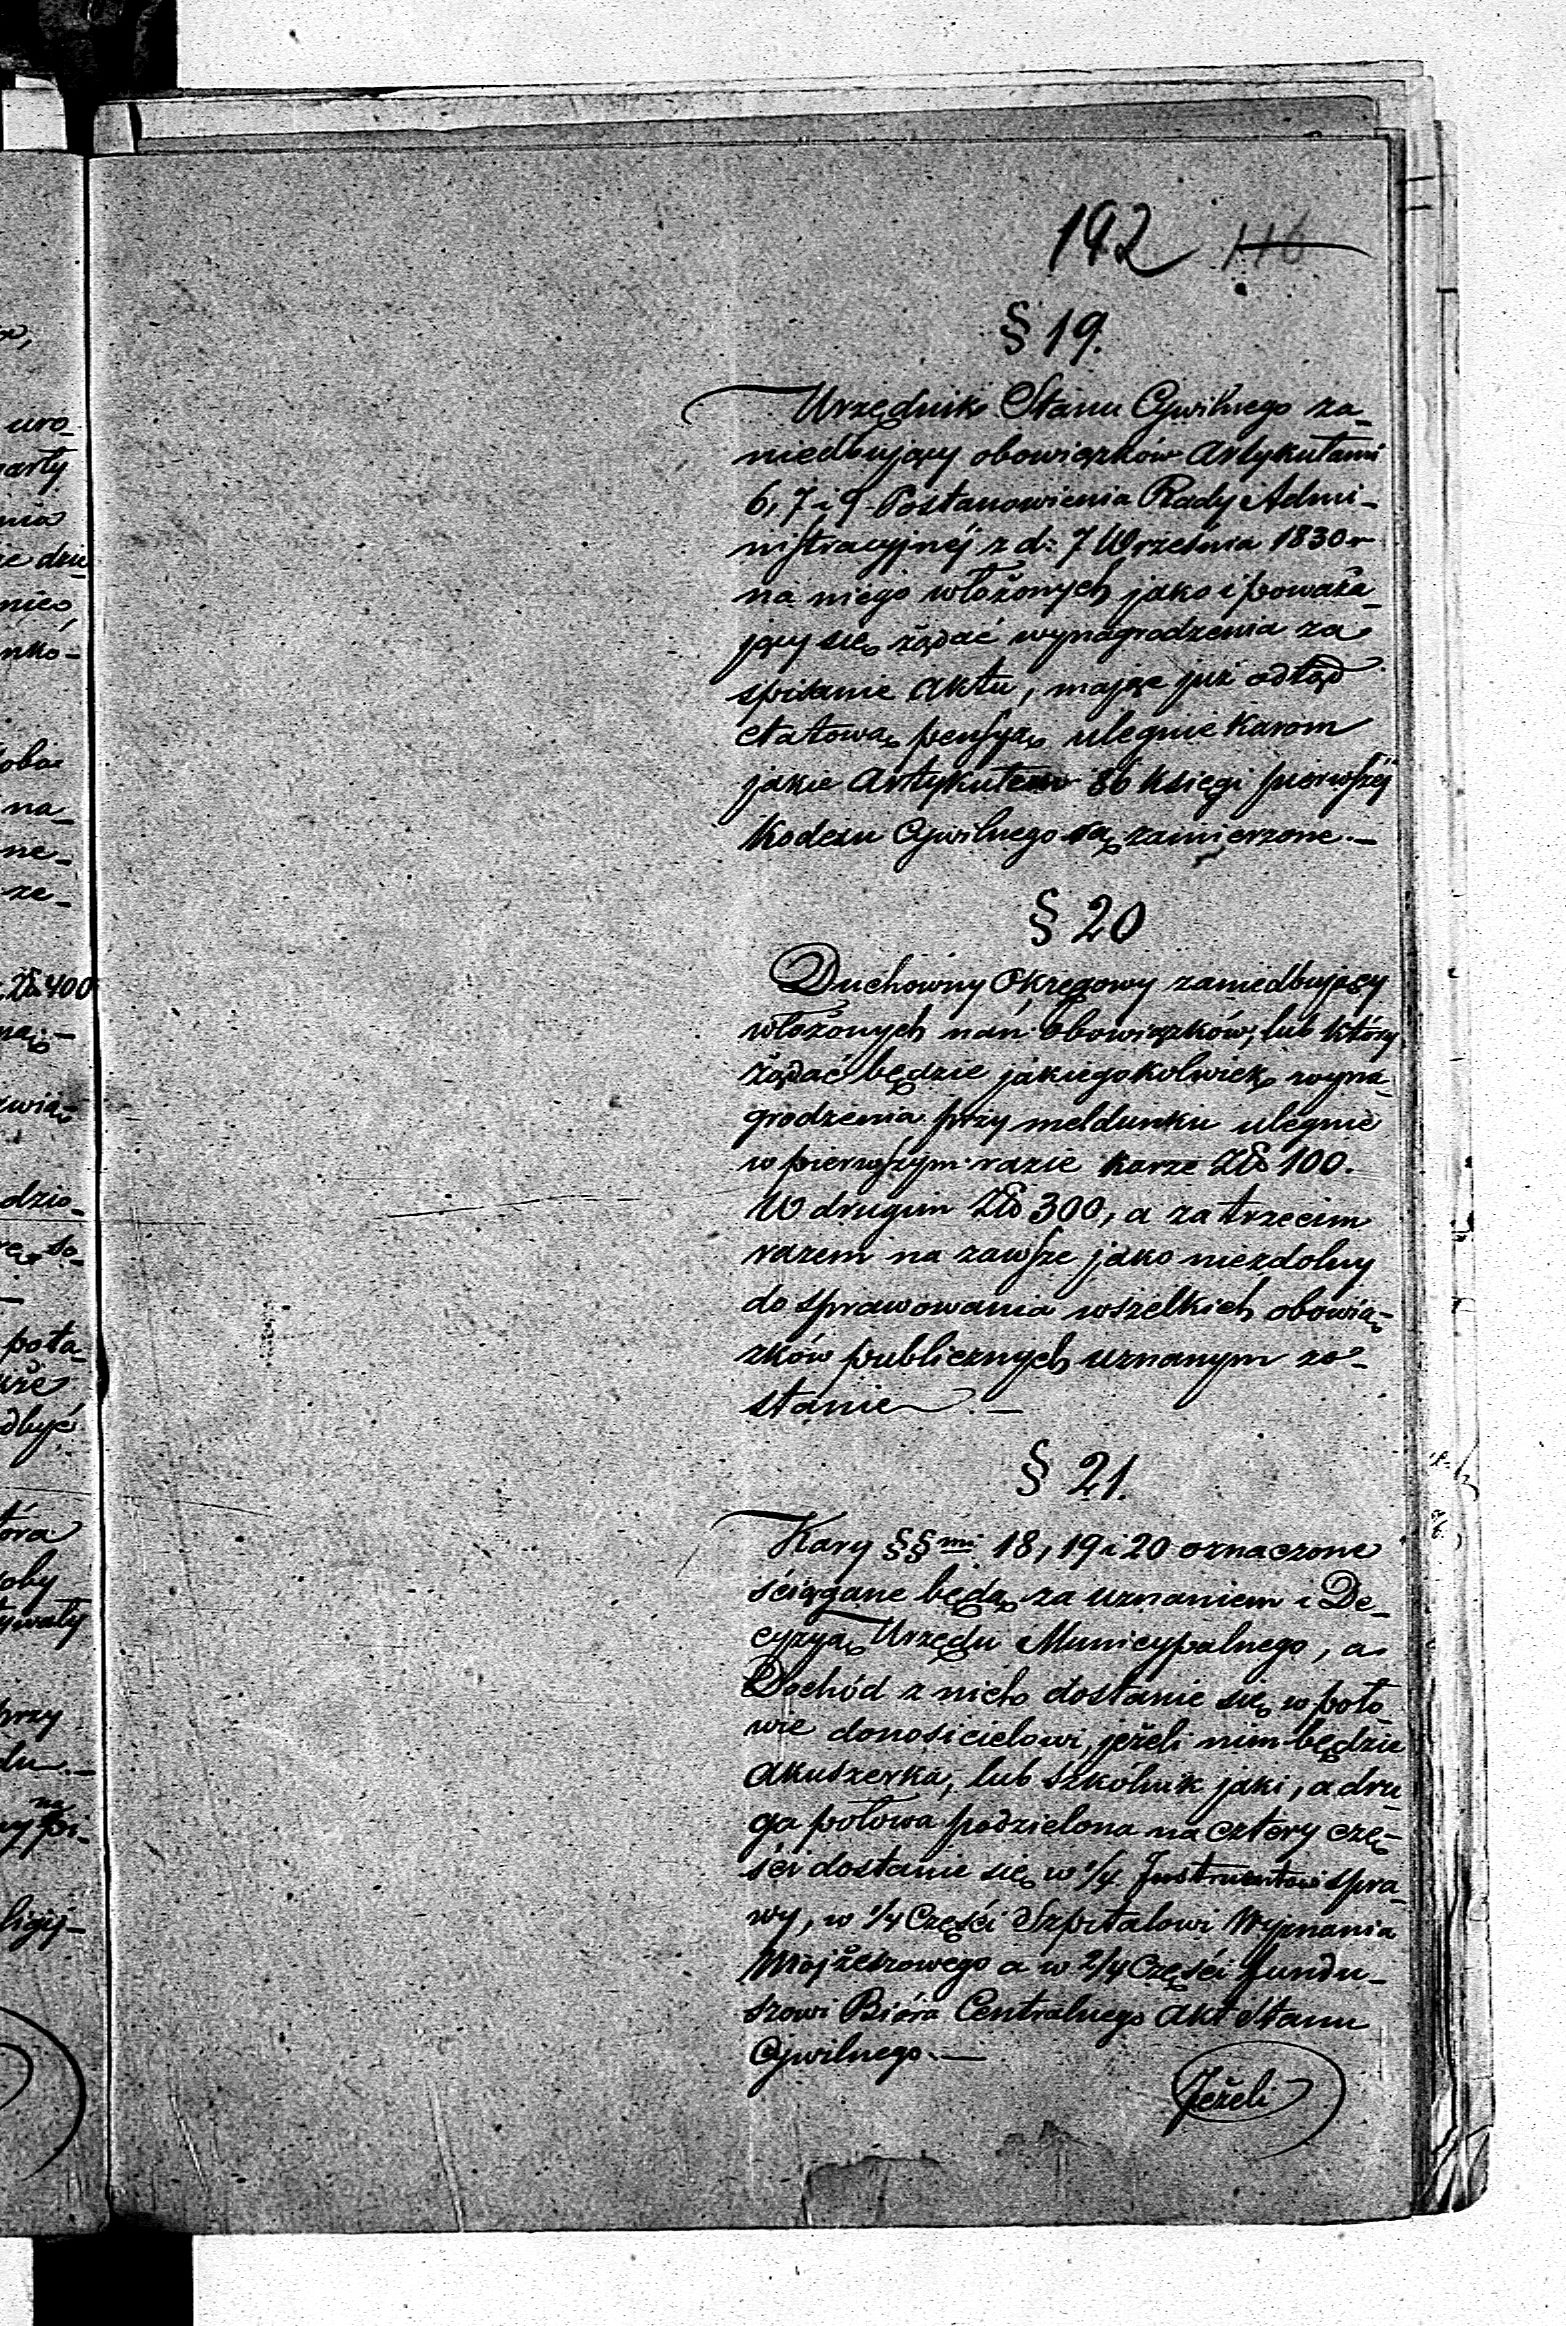 192 116
§ 19.
Urzędnik Stanu Cywilnego za-
niedbujący obowiązków Artykułami
6, 7 i 9 Postanowienia Rady Admi-
nistracyjnéj z d: 7 Września 1830 r
na niego włożonych jako i poważa-
jący się żądać wynagrodzenia za
spisanie Aktu, mając już odtąd
etatową pensyą ulegnie Karom
jakie Artykułem 86 Księgi pierwszéj
Kodexu Cywilnego są zamierzone.—
§ 20
Duchowny Okręgowy zaniedbujący
włożonych nań obowiązków, lub który
żądać będzie jakiegokolwiek wyna-
grodzenia przy meldunku ulegnie
w pierwszym razie karze Zło 100.
W drugim Zło 300, a za trzecim
razem na zawsze jako niezdolny
do sprawowania wszelkich obowią-
zków publicznych uznanym zo-
stanie.—
§ 21.
Kary §§mi 18, 19 i 20 oznaczone
ściągane będą za uznaniem i De-
cyzyą Urzędu Municypalnego, a
Dochód z nich dostanie się w poło-
wie donosicielowi, jeżeli nim będzie
Akuszerka, lub szkólnik jaki, a dru-
ga połowa podzielona na cztery czę-
ści dostanie się w 1/4 Instruentowi spra-
wy, w 1/4 Części Szpitalowi Wyznania
Mojżeszowego a w 2/4 Części fundu-
szowi Bióra Centralnego Akt Stanu
Cywilnego.—
Jeżeli